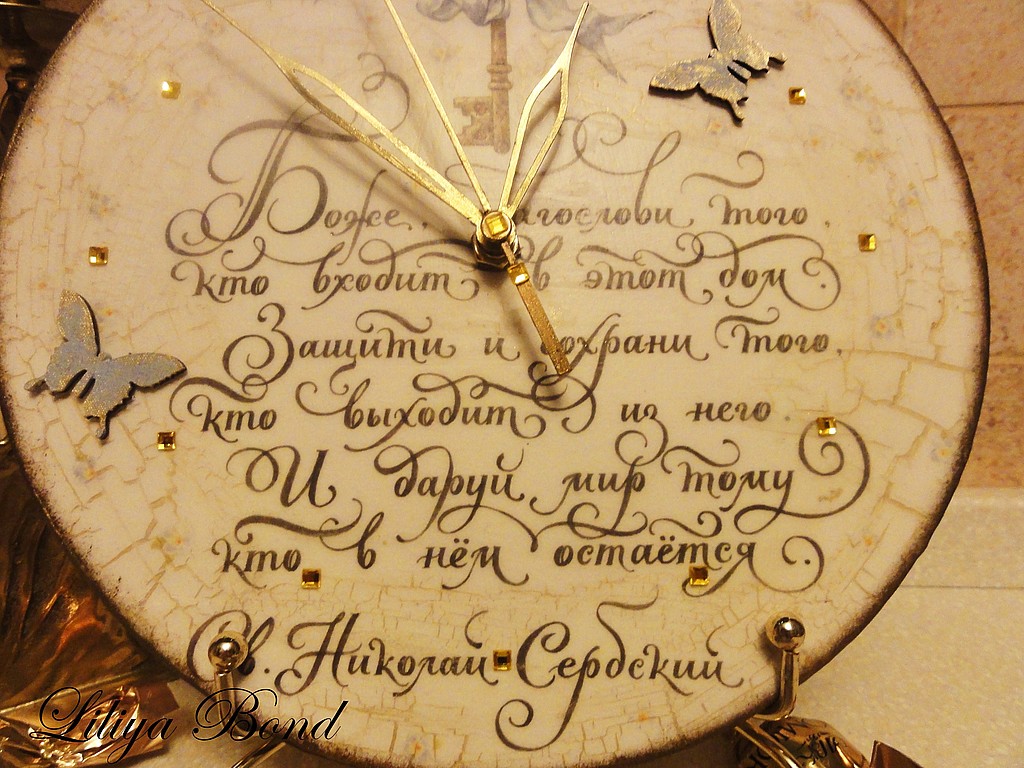 Боже, благослови того,
кто входит в этот дом.
Защити и сохрани того,
кто выходит из него.
И даруй мир тому
кто в нём остаётся.
Св. Николай Сербский
Liliya Bond